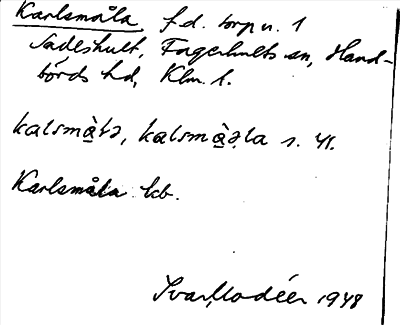 Karlsmåla f.d. torp u. 1
Sadeshult, Fagerhults sn, Hand-
börds hd, Klm. l.
kalsmà̱tə, kalsmà̱ə̣la s. 41.
Karlsmåla kb.
Ivar Modéer 1948